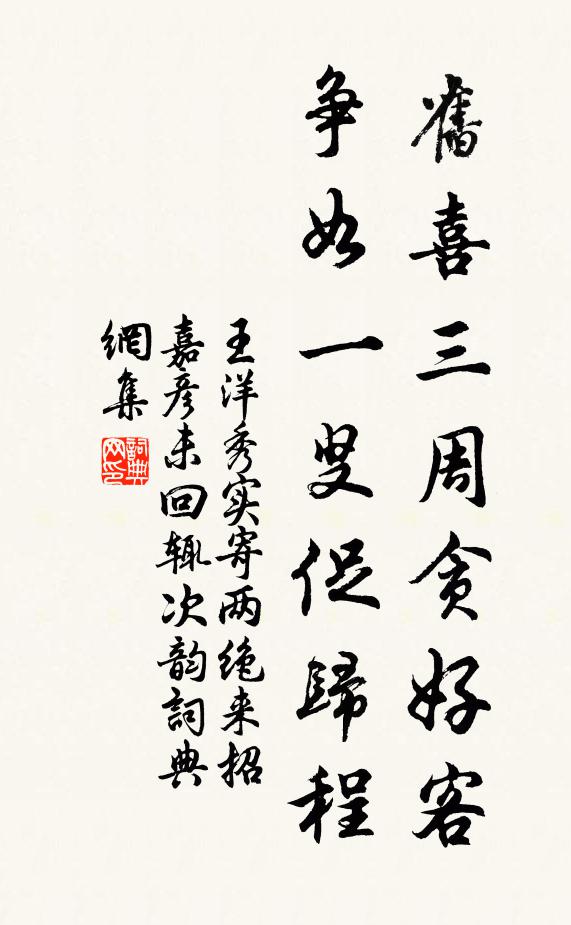 舊喜三周貪好客
争如一叟促歸程
王洋秀实寄两绝来招
嘉彦未回辄次韵詞典
網集
詞典
网印